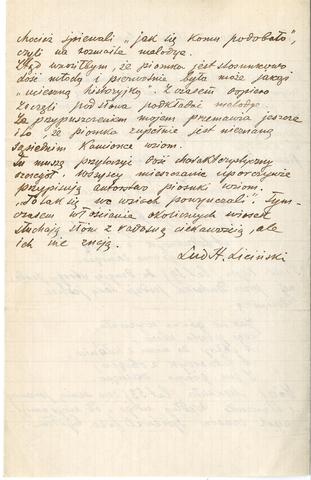 chociaż śpiewali „jak się komu podobało",
czyli na rozmaite melodye.
Stąd wniósłbym, że piosnka jest stosunkowo
dość młodą i pierwotnie była może jakąś
„ucieszną historyjką". Z czasem dopiero
zaczęli pod słowa podkładać melodye.
Za przypuszczeniem mojem przemawia jeszcze
i to, że piosnka zupełnie jest nieznaną
sąsiednim Kamionce wsiom.
Tu muszę przytoczyć dość charakterystyczny
szczegół. Wszyscy mieszczanie uporczywie
przypisują autorstwo piosnki wsiom.
„To tak się we wsiach powyuczali". Tym-
czasem włościanie okolicznych wiosek
słuchają słów z widoczną ciekawością, ale
ich nie znają.
Lud. H. Liciński